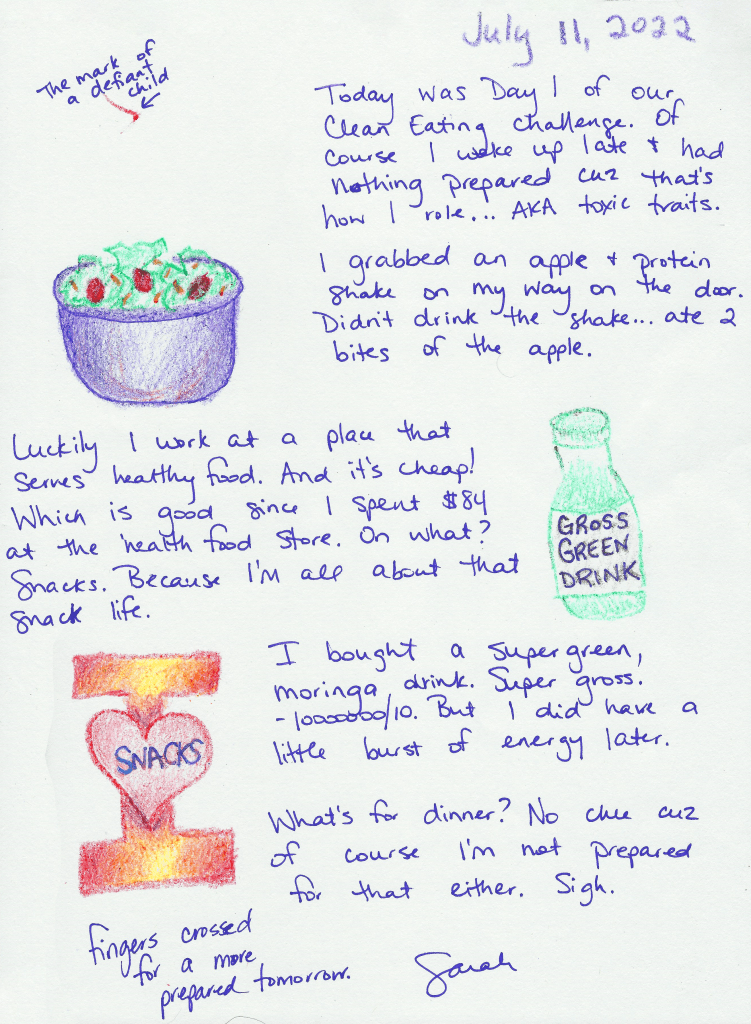 July 11, 2022
The mark of
a defiant
child
Today was Day 1 of our
Clean Eating challenge. Of
course I woke up late + had
nothing prepared cuz that's
how I role... AKA toxic traits.
I grabbed an apple + protein
shake on my way on the door.
Didn't drink the shake... ate 2
bites of the apple.
Luckily I work at a place that
serves healthy food. And it's cheap!
Which is good since I spent $84
at the health food store. On what?
Snacks. Because I'm all about that
snack life.
GROSS
GREEN
DRINK
I bought a super green,
moringa drink. Super gross.
-10000000/10. But I did have a
little burst of energy later.
I
SNACKS
What's for dinner? No clue cuz
of course I'm not prepared
for that either. Sigh.
fingers crossed
for a more
prepared tomorrow.
Sarah